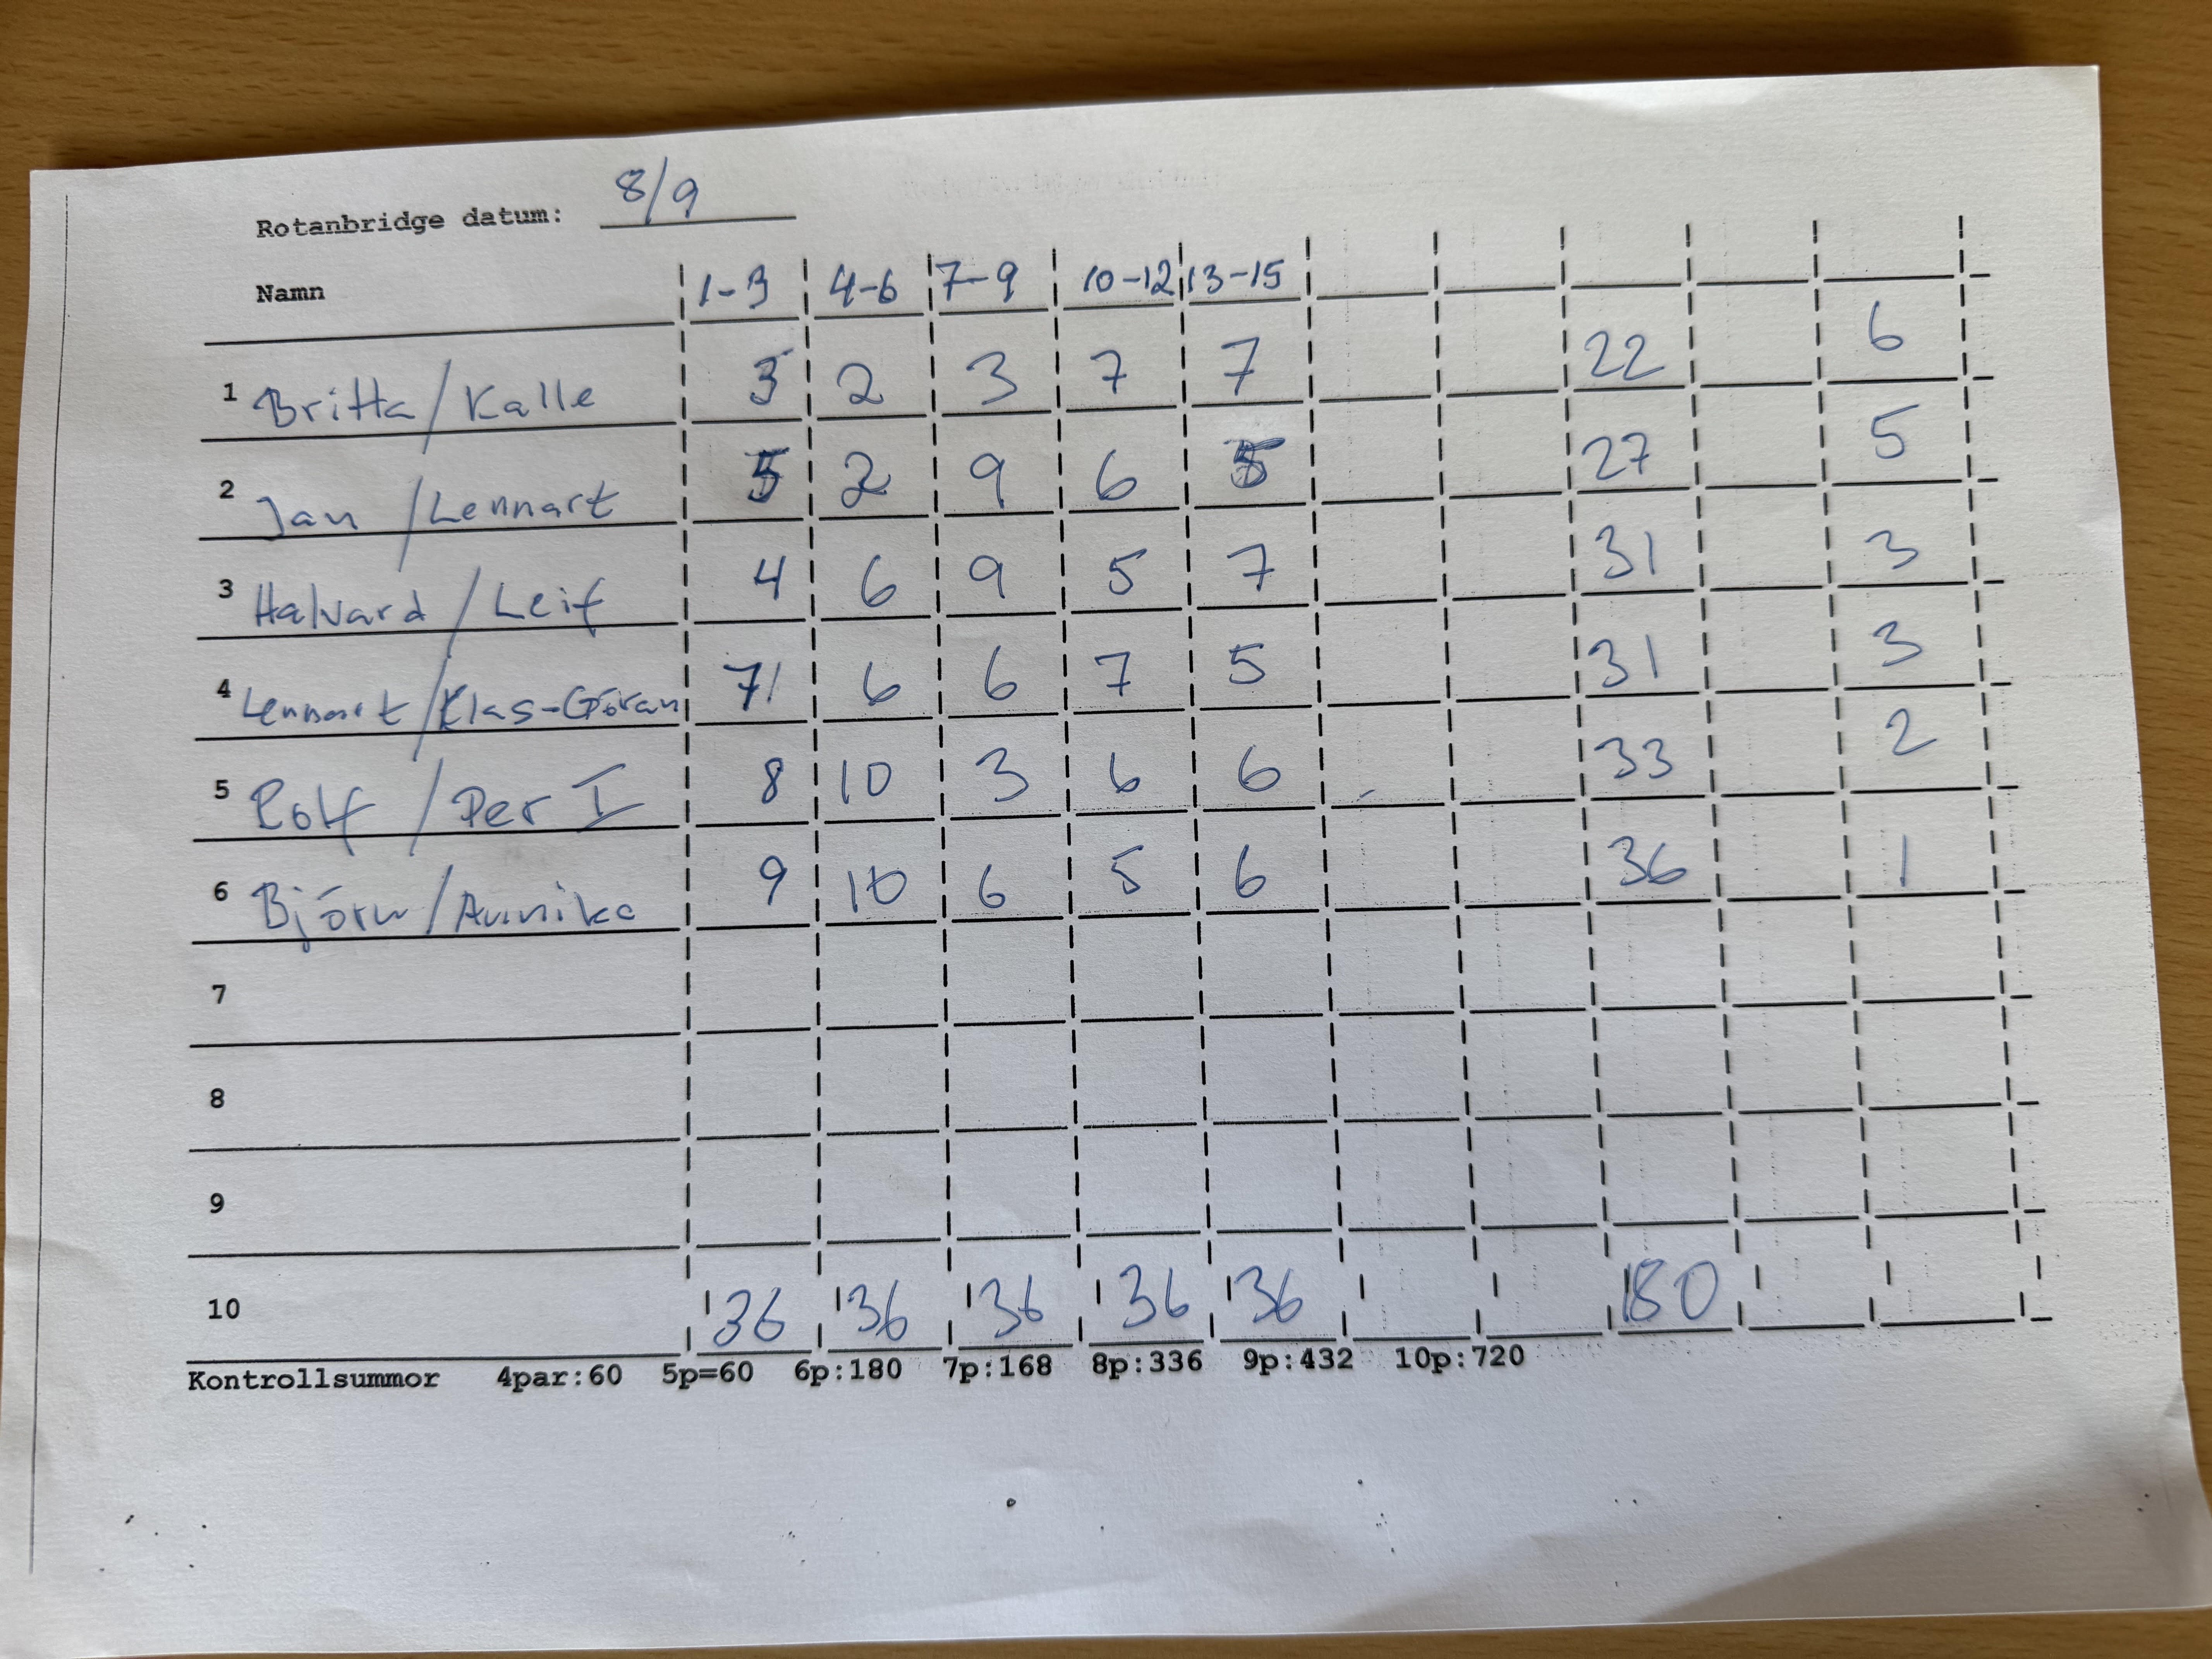 Rotanbridge datum: 8/9
Namn 1-3 4-6 7-9 10-12 13-15
1 Britta/Kalle 3 2 3 7 7 22 6
2 Jan/Lennart 5 2 9 6 5 27 5
3 Halvard/Leif 4 6 9 5 7 31 3
4 Lennart/Klas-Göran 7 6 6 7 5 31 3
5 Rolf/Per I 8 10 3 6 6 33 2
6 Björn/Annika 9 10 6 5 6 36 1
7
8
9
10 36 36 36 36 36 180
Kontrollsummor 4par:60 5p=60 6p:180 7p:168 8p:336 9p:432 10p:720